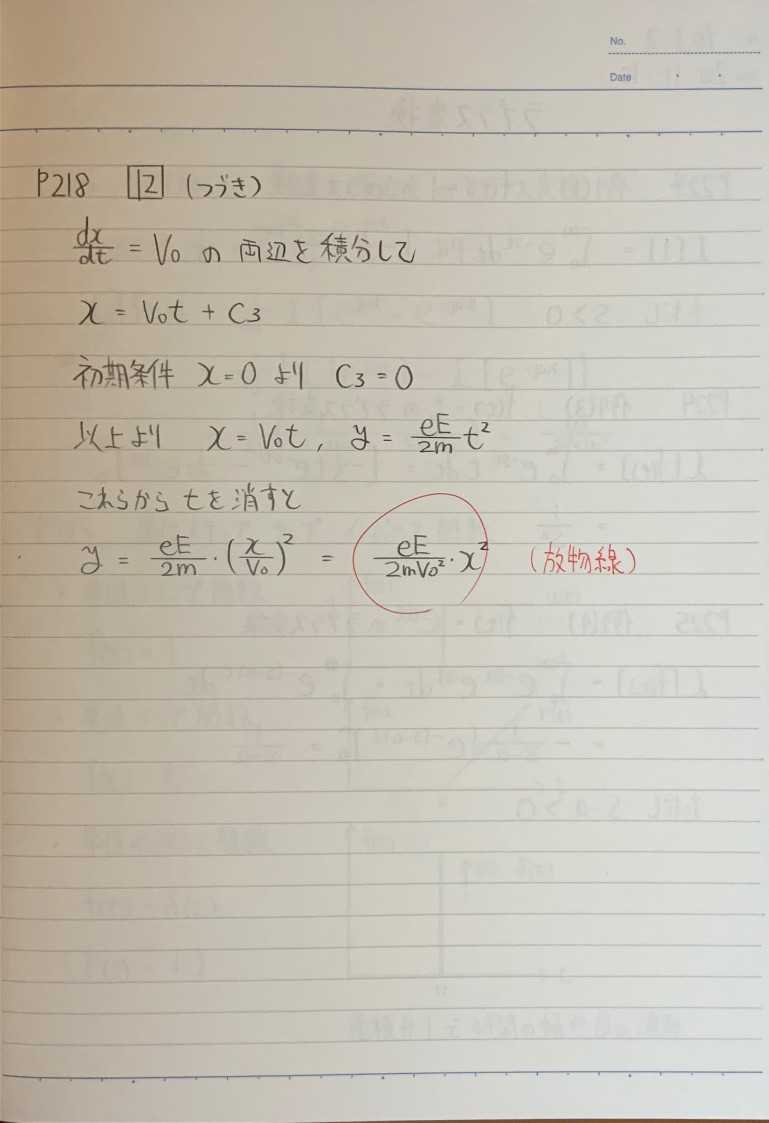 No.
Date
P218 12 (つづき)
dx/dt = V₀ の両辺を積分して
x = V₀t + C₃
初期条件 x = 0 より C₃ = 0
以上より x = V₀t, y = eE/2m t²
これらから tを消すと
y = eE/2m · (x/V₀)² = eE/2mV₀² · x² (放物線)